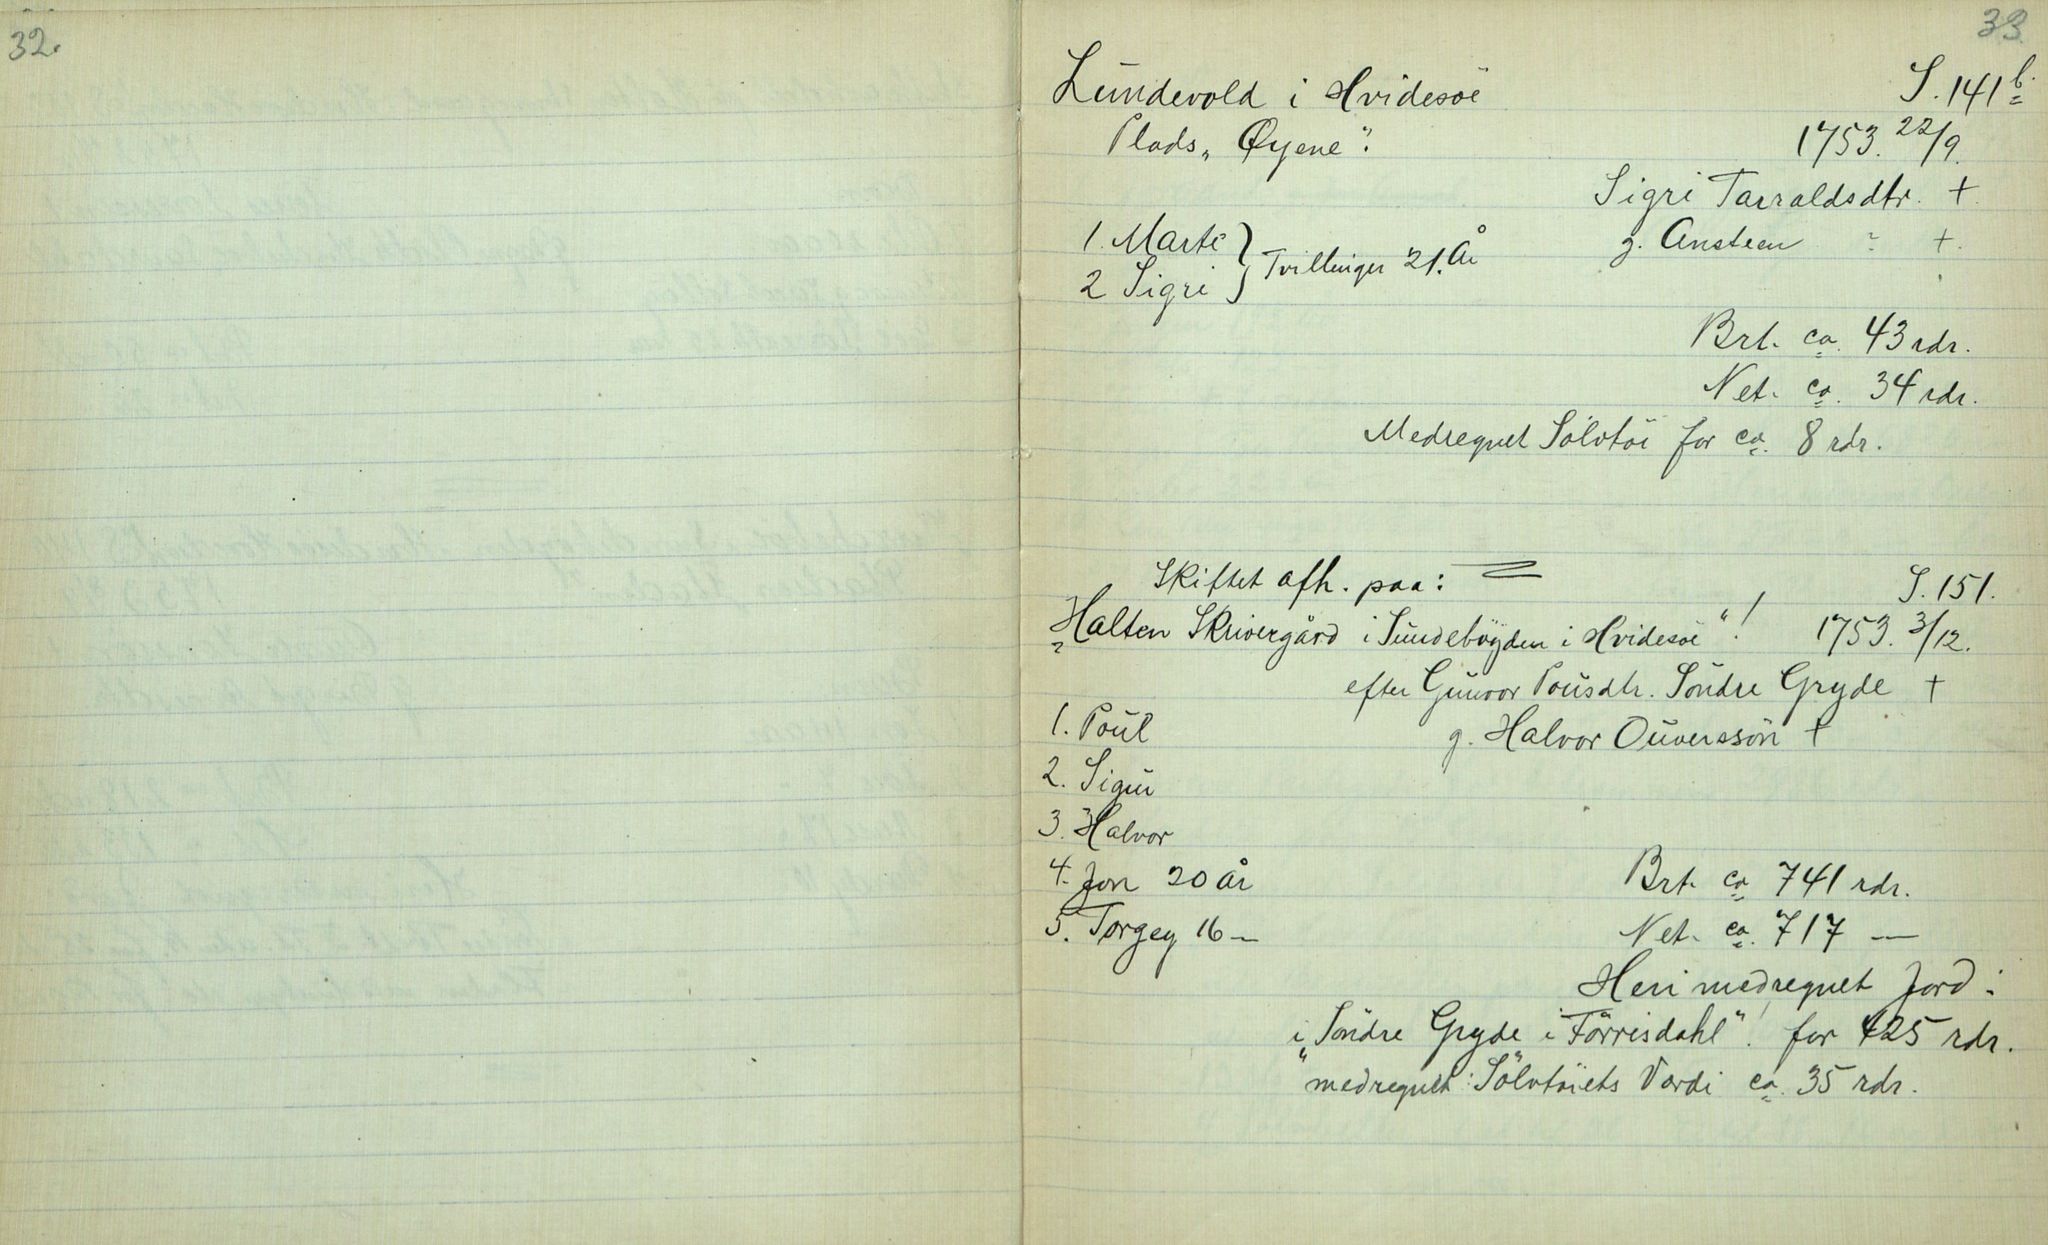 32.
33
Lundevold i Hvidesøe S. 141 b.
Plads „Øyene“. 1753. 22/9.
Sigri Tarraldsdtr. +.
1. Marte } Tvillinger 21. År
g. Ansteen ? +.
2 Sigri
Brt. ca. 43 rdr.
Net. ca. 34 rdr.
Medregnet Sölvtöi for ca. 8 rdr.
Skiftet afh. paa: S. 151.
„Halten Skrivergård i Sundebögden i Hvidesöe“! 1753. 3/12.
efter Gunvor Poulsdtr. Söndre Gryde +
1. Poul
g. Halvor Ouversson +
2. Sigur
3. Halvor
4. Jon 20 år
Brt. ca 741 rdr.
5. Torgey 16 —
Net. ca. 717 —
Heri medregnet Jord:
i „Söndre Gryde i Förrisdahl“! for 425 rdr.
medregnet: Sölvtöiets Værdi ca. 35 rdr.